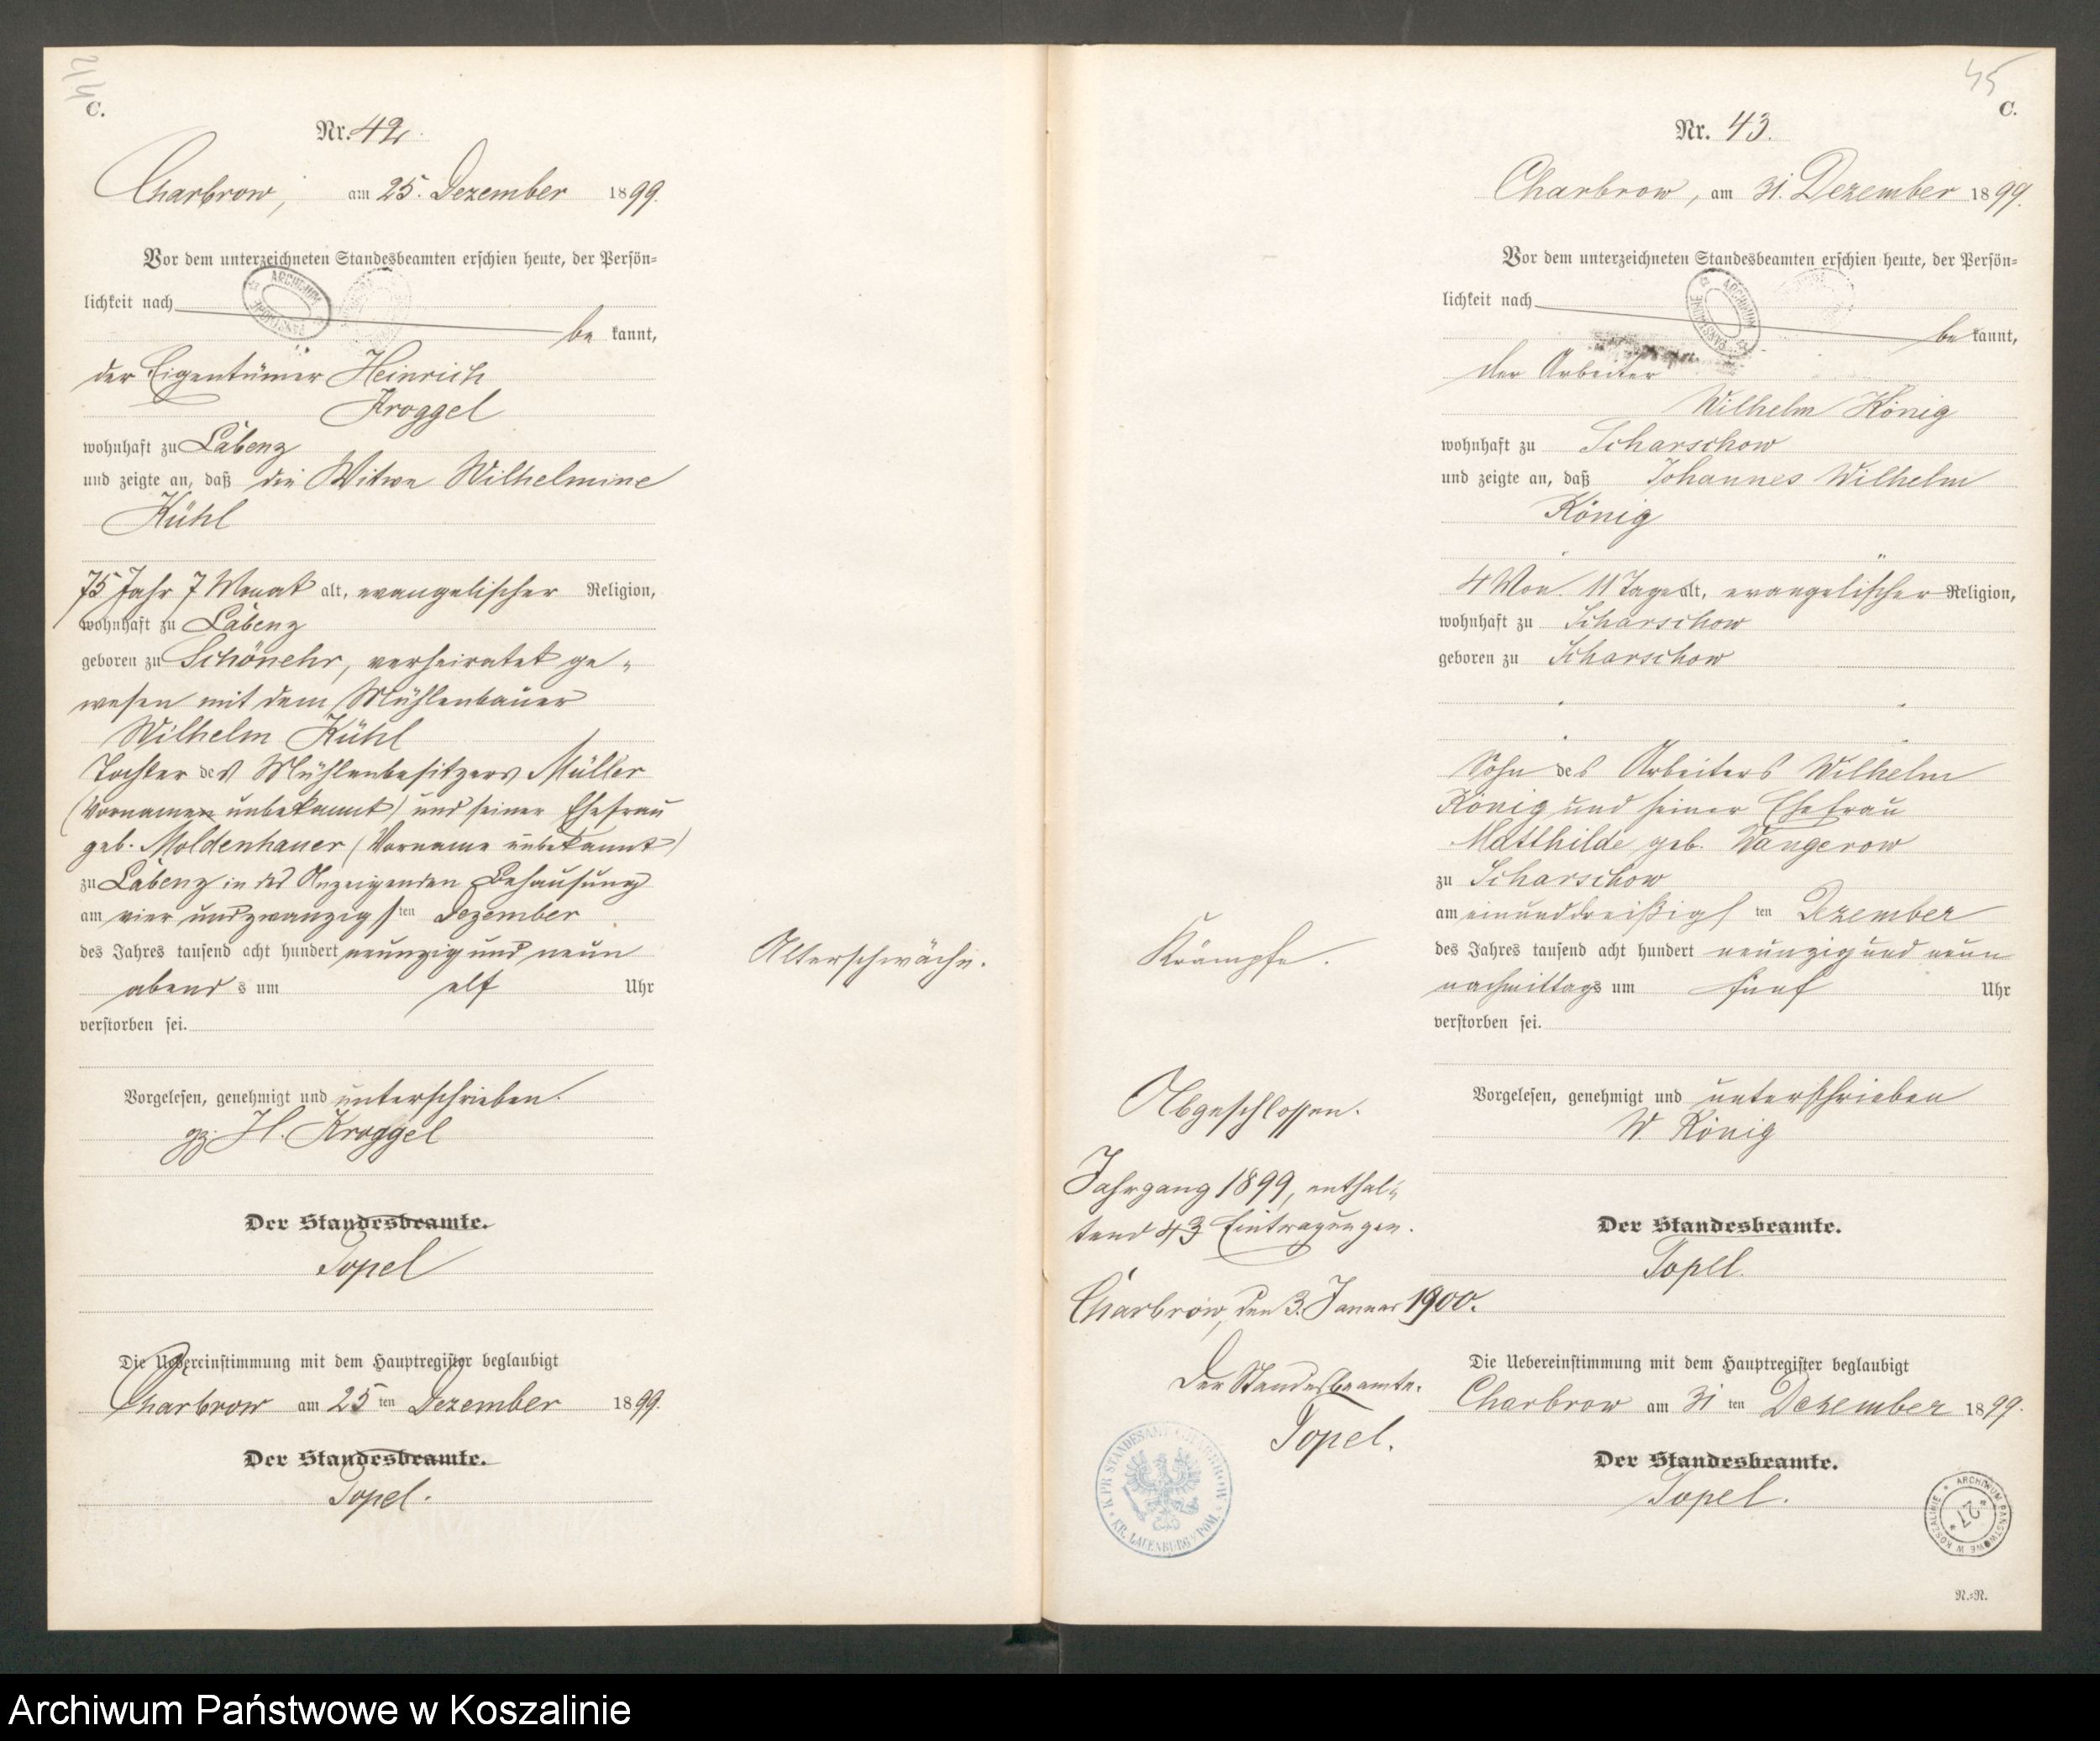 44
C.
Nr. 42.
Charbrow, am 25. Dezember 1899.
Vor dem unterzeichneten Standesbeamten erschien heute, der Persön=
lichkeit nach
be kannt,
der Eigentümer Heinrich
Kroggel
wohnhaft zu Labenz
und zeigte an, daß die Witwe Wilhelmine
Kühl
75 Jahr 7 Monat alt, evangelischer Religion,
wohnhaft zu Labenz
geboren zu Schönehr, verheiratet ge-
wesen mit dem Mühlenbauer
Wilhelm Kühl
Tochter des Mühlenbesitzers Müller
(Vornamen unbekannt) und seiner Ehefrau
geb. Moldenhauer (Vorname unbekannt)
zu Labenz in des Anzeigenden Behausung
am vier und zwanzigsten Dezember
des Jahres tausend acht hundert neunzig und neun
abends um elf Uhr
verstorben sei.
Altersschwäche.
Vorgelesen, genehmigt und unterschrieben.
gz. H. Kroggel
Der Standesbeamte.
Topel
Die Uebereinstimmung mit dem Hauptregister beglaubigt
Charbrow am 25 ten Dezember 1899.
Der Standesbeamte.
Topel.
45
C.
Nr. 43.
Charbrow, am 31. Dezember 1899.
Vor dem unterzeichneten Standesbeamten erschien heute, der Persön=
lichkeit nach
be kannt,
der Arbeiter
Wilhelm König
wohnhaft zu Scharschow
und zeigte an, daß Johannes Wilhelm
König
4 Mon. 11 Tage alt, evangelischer Religion,
wohnhaft zu Scharschow
geboren zu Scharschow
Sohn des Arbeiters Wilhelm
König und seiner Ehefrau
Matthilde geb. Wangerow
zu Scharschow
am einunddreißigsten Dezember
des Jahres tausend acht hundert neunzig und neun
nachmittags um fünf Uhr
verstorben sei.
Krämpfe.
Vorgelesen, genehmigt und unterschrieben
W. König
Der Standesbeamte.
Topel.
Abgeschlossen.
Jahrgang 1899, enthal-
tend 43 Eintragungen.
Charbrow, den 3. Januar 1900.
Der Standesbeamte.
Topel.
K. PR. STANDESAMT CHARBROW
KR. LAUENBURG i/POM.
Die Uebereinstimmung mit dem Hauptregister beglaubigt
Charbrow am 31 ten Dezember 1899.
Der Standesbeamte.
Topel.
ARCHIWUM PAŃSTWOWE W KOSZALINIE
27
N.=N.
Archiwum Państwowe w Koszalinie